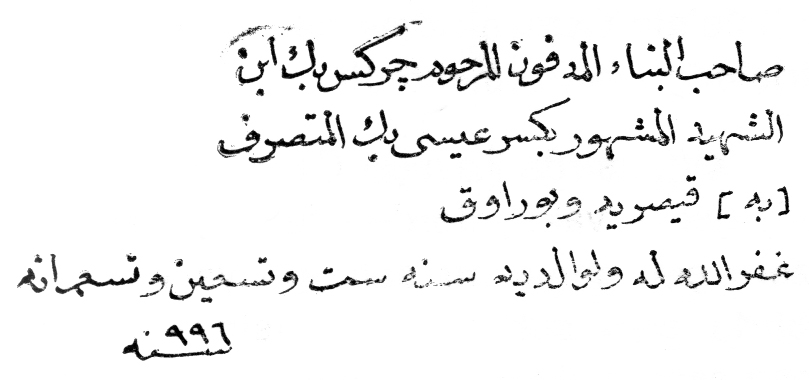 صاحب البناء المدفون المرحوم چركس بك ابن
الشهيد المشهور بكسر عيسى بك المتصرف
[به] قيصريه وبوراوق
غفر الله له ولوالديه سنه ست وتسعين وتسعمائه
سنه ٩٩٦